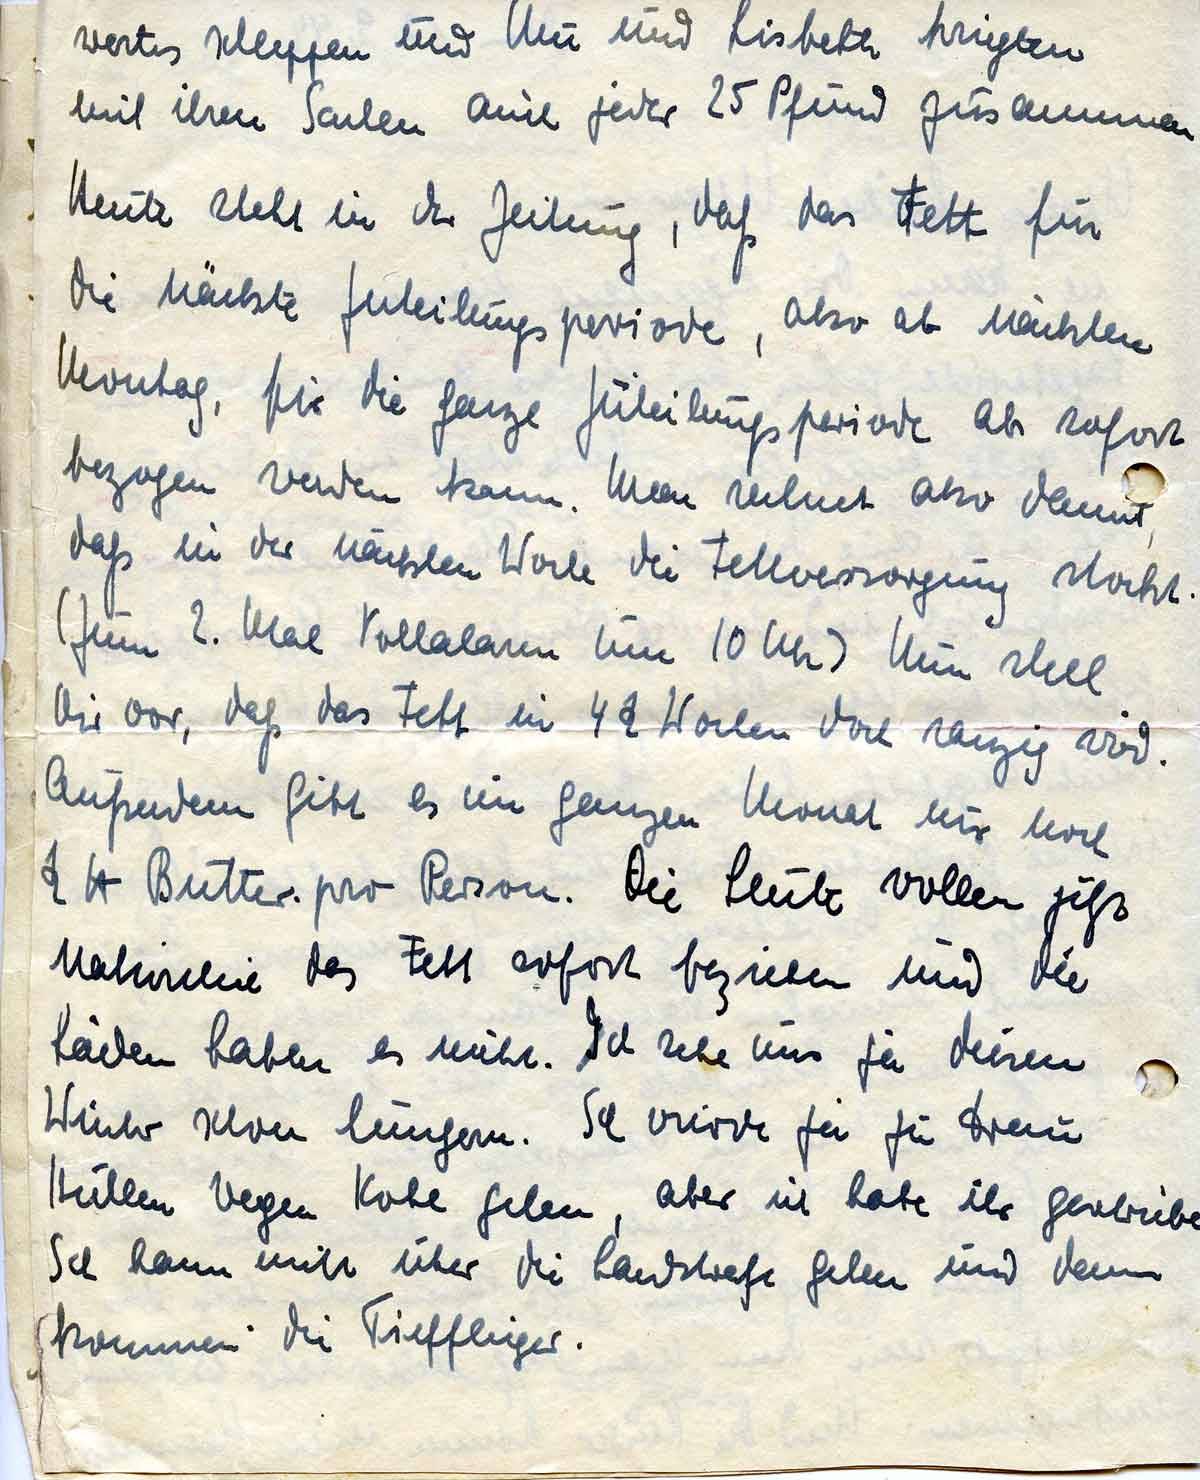 wertes schleppen und Mu und Lisbeth kriegten
mit ihren Sachen auch jeder 25 Pfund zusammen
Heute steht in der Zeitung, daß das Fett für
die nächste Zuteilungsperiode, also ab nächsten
Montag, für die ganze Zuteilungsperiode ab sofort
bezogen werden kann. Man rechnet also damit,
daß in der nächsten Woche die Fettversorgung stockt.
(Zum 2. Mal Vollalarm um 10 Uhr) Nun stell
Dir vor, daß das Fett in 4 Wochen doch ranzig wird.
Außerdem gibt es im ganzen Monat nur noch
Butter pro Person. Die Leute wollen jetzt
natürlich das Fett sofort beziehen und die
Läden haben es nicht. Ich sehe uns ja diesen
Winter schon hungern. Ich würde ja zu
Hüllen wegen Kohl gehen, aber ich habe ihr geschrieben
Ich kann nicht über die Landstraße gehen und dann
kommen die Tiefflieger.